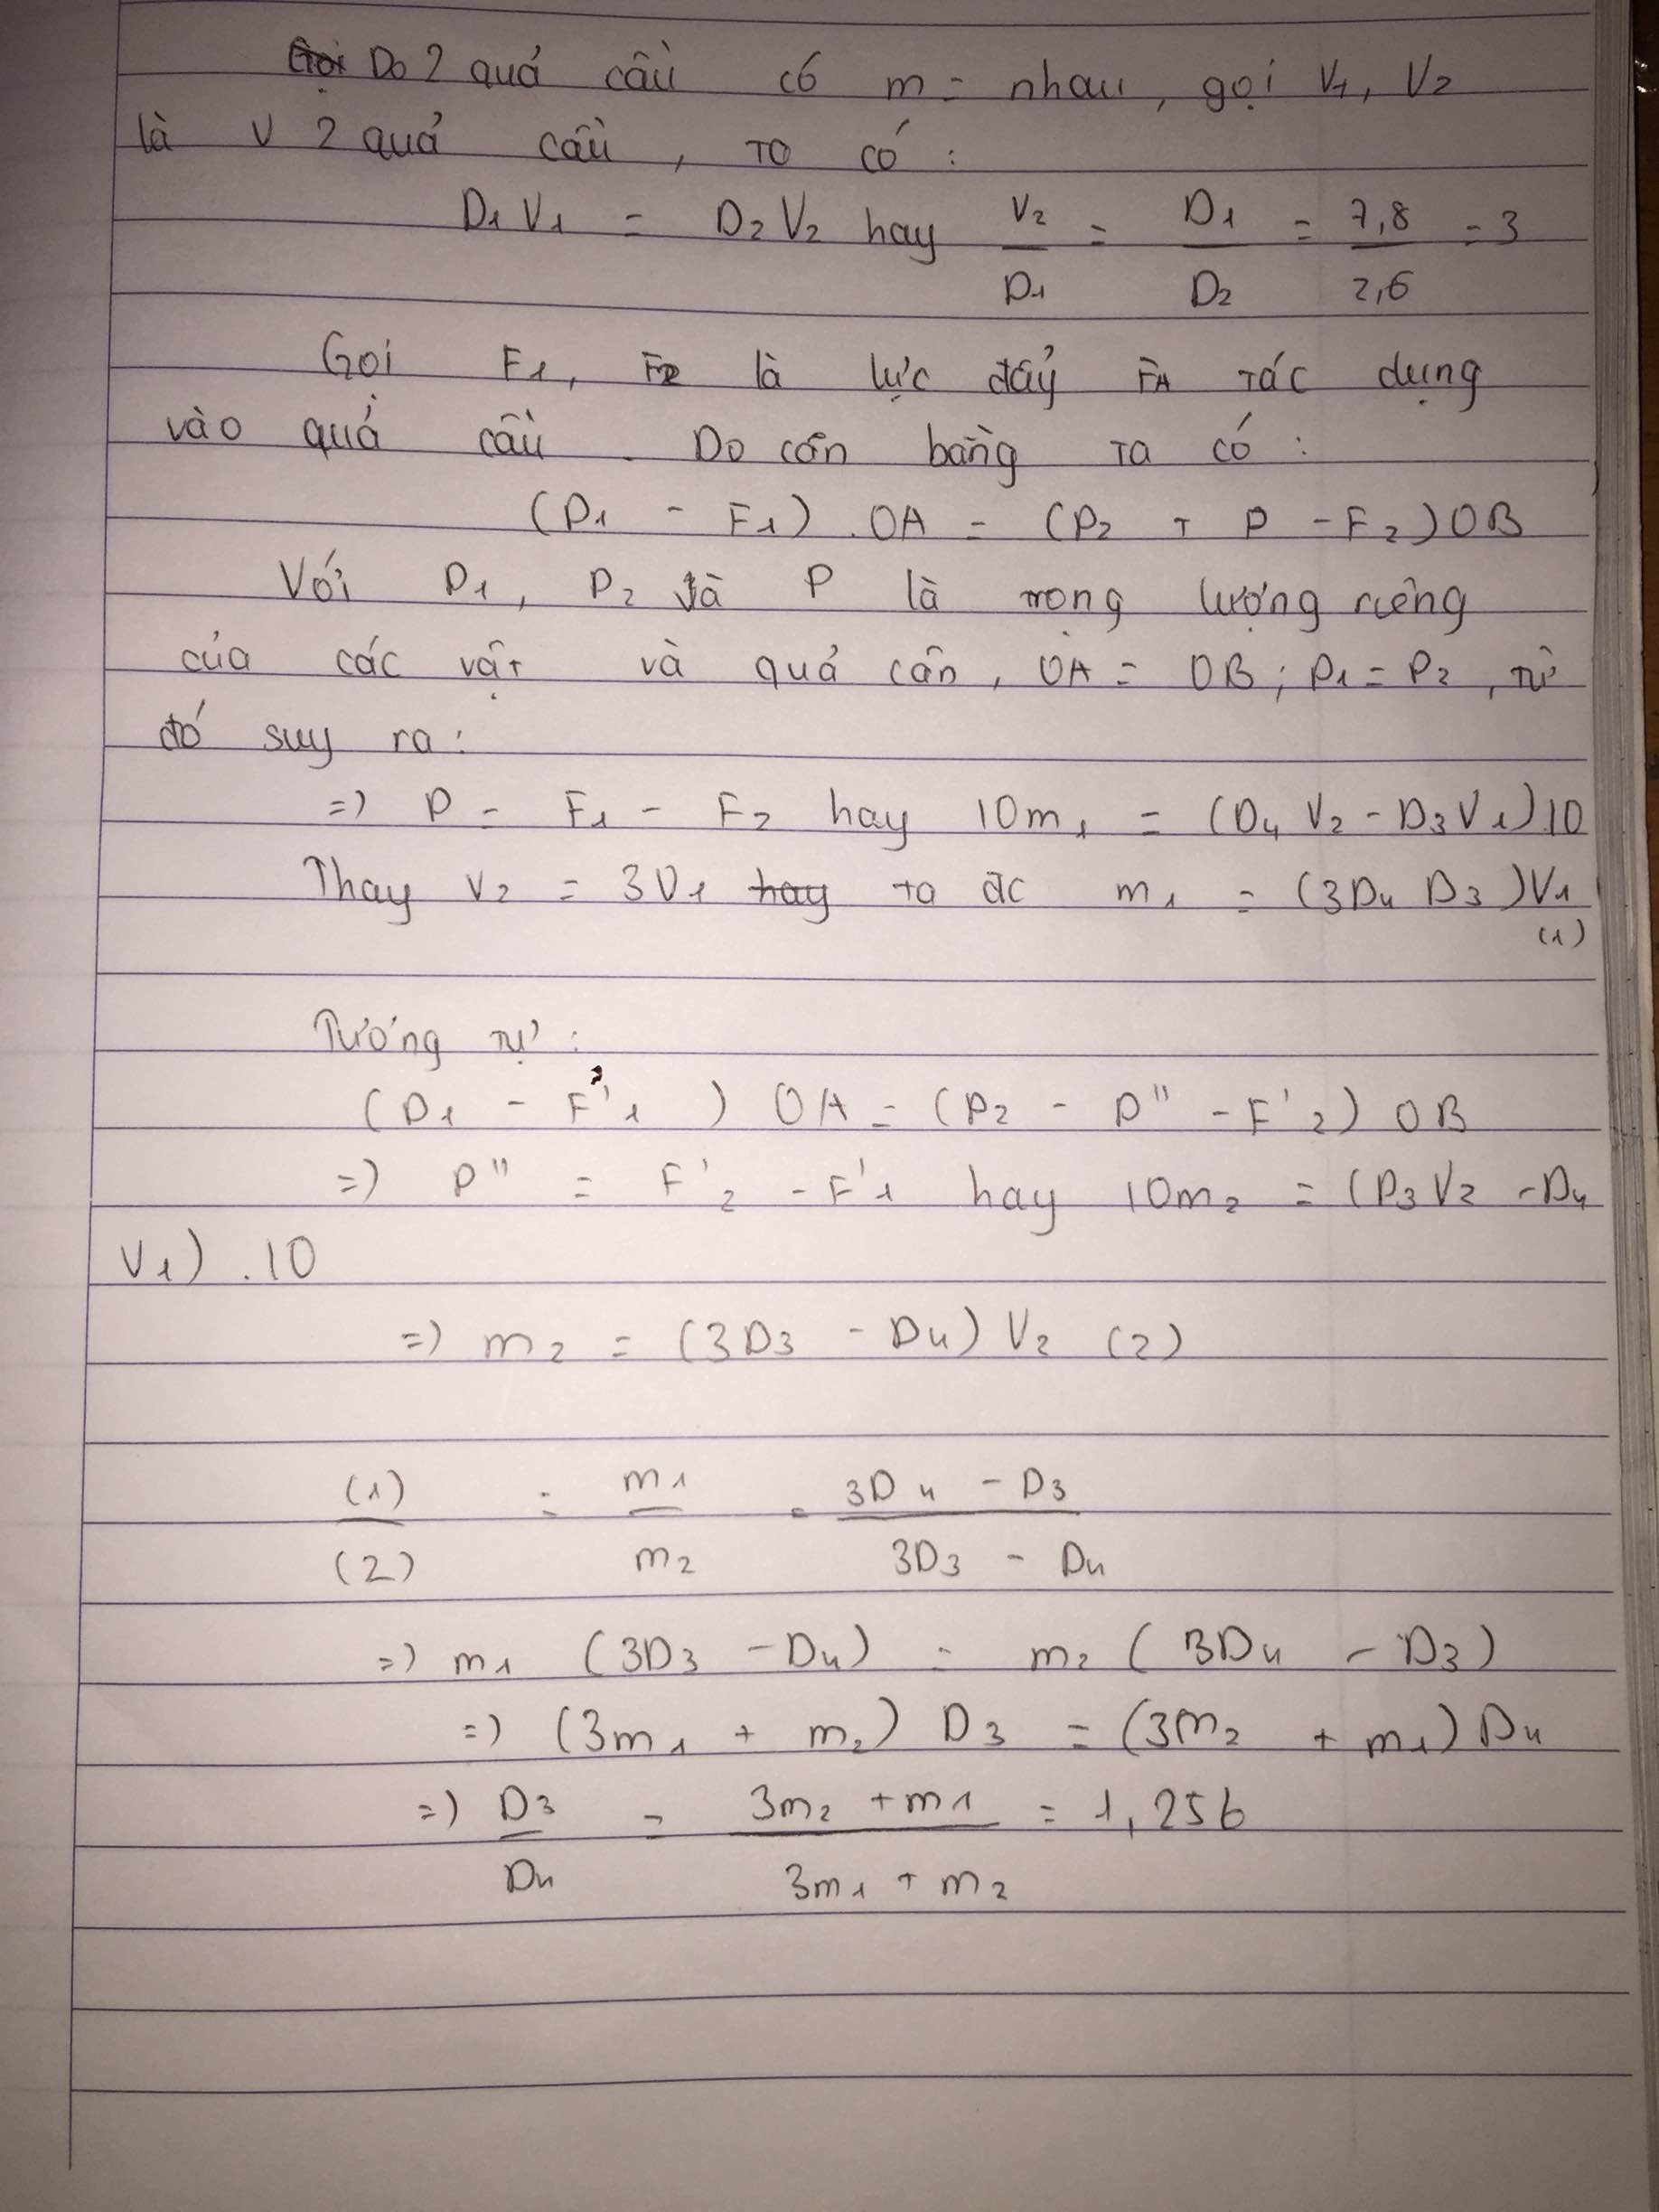 Do 2 quả cầu có m = nhau, gọi V1, V2
là V 2 quả cầu, ta có :
D1 V1 = D2 V2 hay V2/D1 = D1/D2 = 7,8/2,6 = 3
Gọi F1, F2 là lực đẩy FA tác dụng
vào quả cầu. Do cân bằng ta có :
(P1 - F1) .OA = (P2 + P - F2) OB
Với P1, P2 và P là trọng lượng riêng
của các vật và quả cân, OA = OB; P1 = P2, từ
đó suy ra :
=> P = F1 - F2 hay 10m1 = (D4 V2 - D3 V1).10
Thay V2 = 3V1 hay ta đc m1 = (3D4 D3)V1
(1)
Tương tự :
(P1 - F'1 ) OA = (P2 - P" - F'2) OB
=> P" = F'2 - F'1 hay 10m2 = (D3 V2 - D4
V1) .10
=> m2 = (3D3 - D4) V2 (2)
(1)/(2) = m1/m2 = 3D4 - D3/3D3 - D4
=> m1 (3D3 - D4) = m2 (3D4 - D3)
=> (3m1 + m2) D3 = (3m2 + m1) D4
=> D3/D4 = 3m2 + m1/3m1 + m2 = 1,256